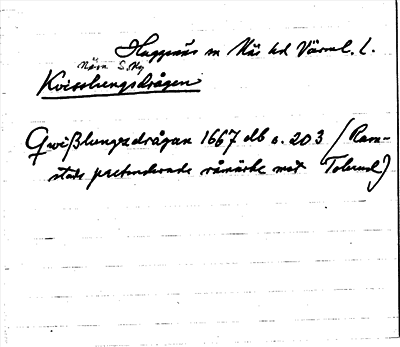 Huggenäs sn Näs hd Värml. l.
Näsn S. Ng
Kvisslungsdrågen
Qwißlungzdrågan 1667 db s. 203 (Ram-
stads pretenderade råmärke mot Tolerud)